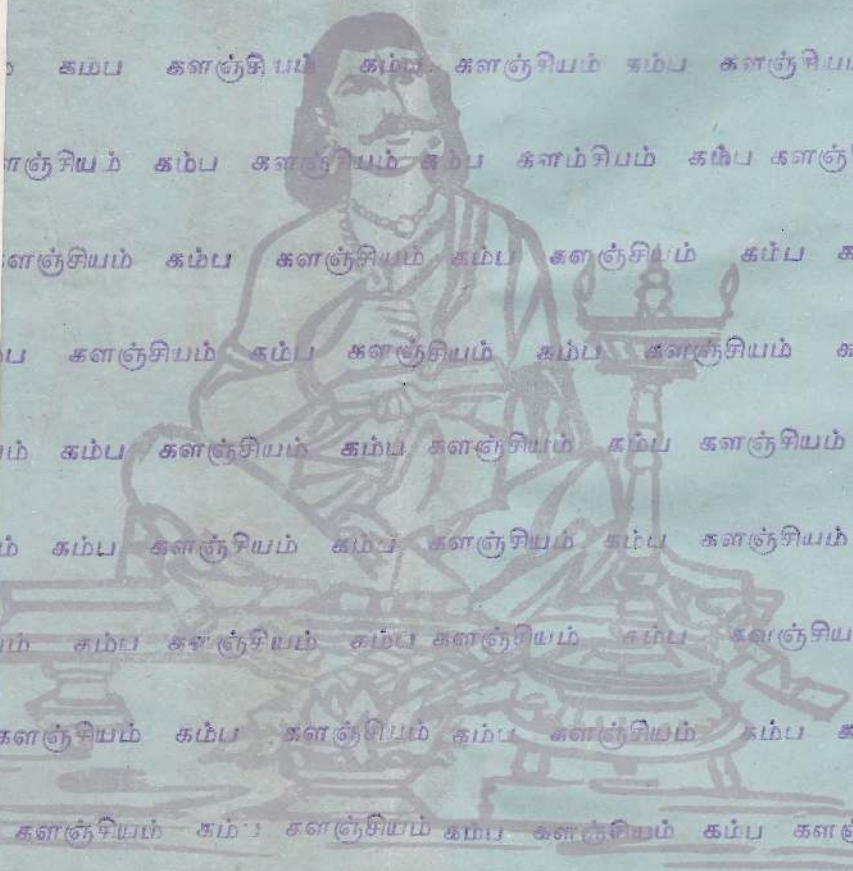 கம்ப களஞ்சியம் கம்ப களஞ்சியம் கம்ப களஞ்சியம்
களஞ்சியம் கம்ப களஞ்சியம் கம்ப களம்சியம் கம்ப களஞ்
களஞ்சியம் கம்ப களஞ்சியம் கம்ப களஞ்சியம் கம்ப க
ப களஞ்சியம் கம்ப களஞ்சியம் கம்ப களஞ்சியம் க
ம் கம்ப களஞ்சியம் கம்ப களஞ்சியம் கம்ப களஞ்சியம்
ம் கம்ப களஞ்சியம் கம்ப களஞ்சியம் கம்ப களஞ்சியம்
யம் கம்ப களஞ்சியம் கம்ப களஞ்சியம் கம்ப களஞ்சிய
களஞ்சியம் கம்ப களஞ்சியம் கம்ப களஞ்சியம் கம்ப க
களஞ்சியம் கம்ப களஞ்சியம் கம்ப களஞ்சியம் கம்ப கள